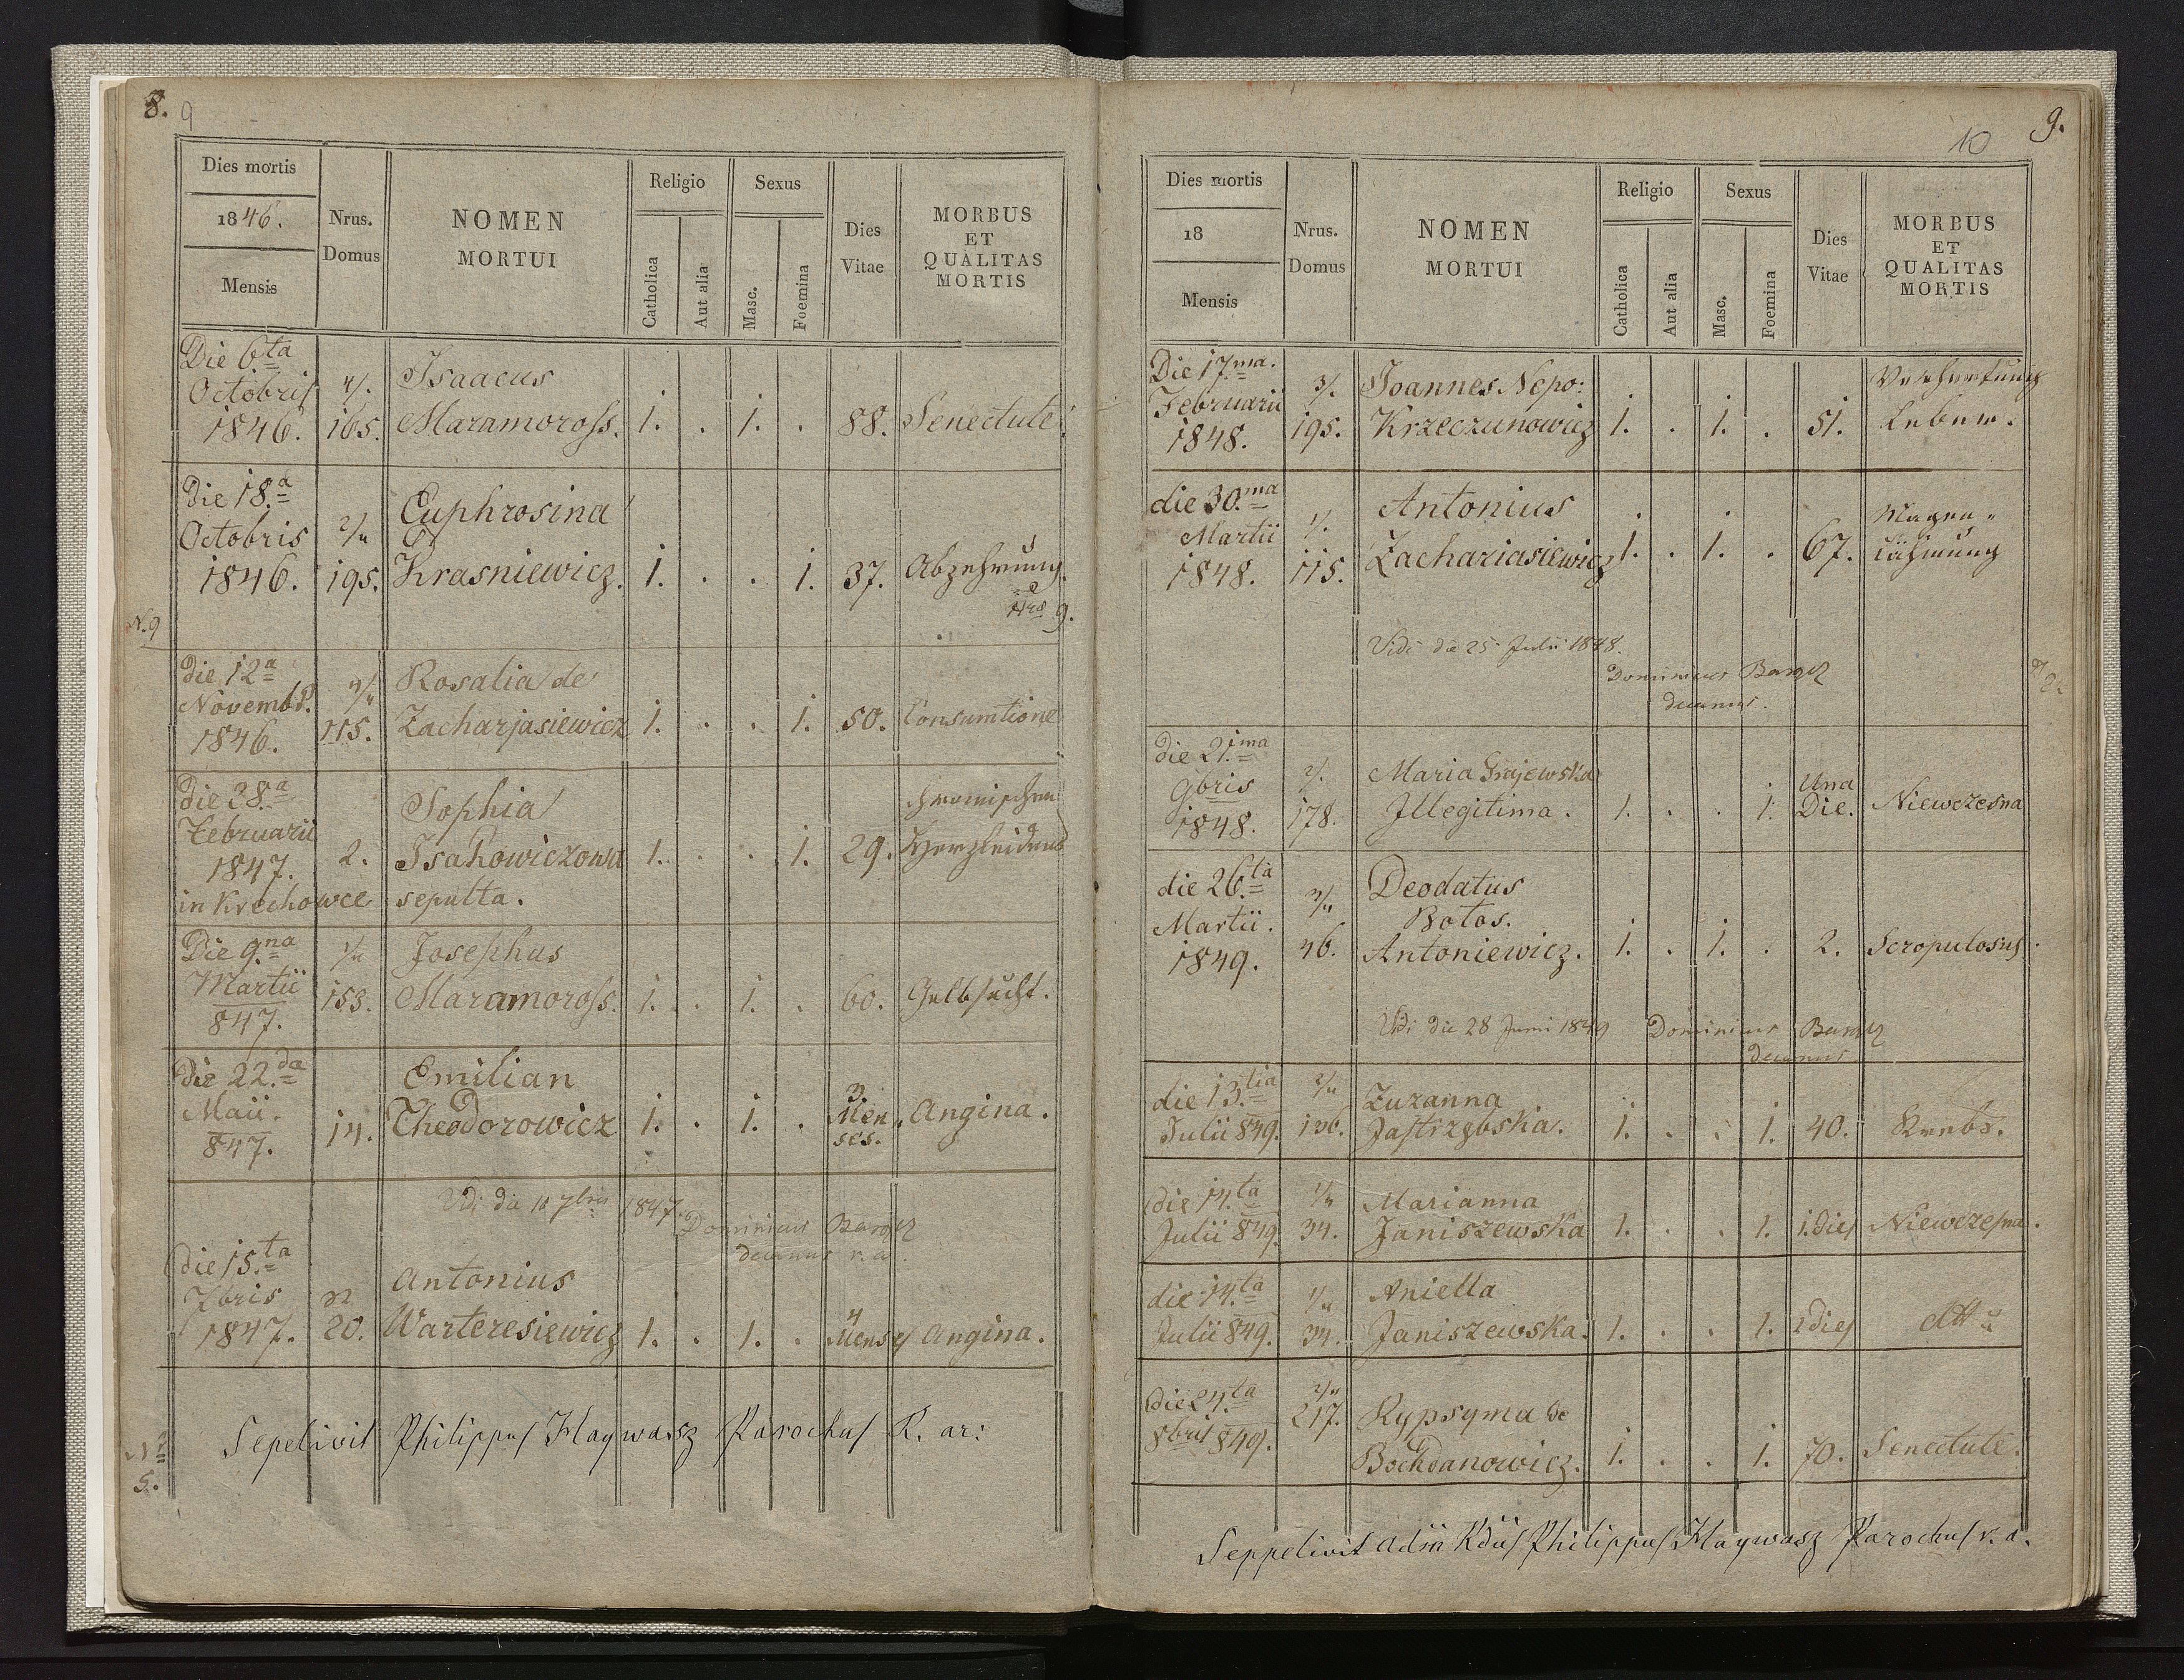 8. 9
Dies mortis
1846.
Mensis
Nrus.
Domus
NOMEN
MORTUI
Religio
Catholica
Aut alia
Sexus
Masc.
Foemina
Dies
Vitae
MORBUS
ET
QUALITAS
MORTIS
Die 6ta
Octobris 4/. Isaacus
1846. 165. Maramoross. 1. . 1. . 88. Senectute
Die 18.a
Octobris 2/u Euphrosina
1846. 195. Krasniewicz. 1. . . 1. 37. Abzehrung.
N. 9
9.
die 12a 4/u Rosalia de
Novembr.
1846. 115. Zacharjasiewicz 1. . . 1. 50. Consumtione
die 28.a Sophia chronischen
Februarii
1847. 2. Isakowiczowa 1. . . 1. 29. Herzleidens
in Krechowce sepulta.
Die 9.na 1/u Josephus
Martii 153. Maramoross. 1. . 1. . 60. Gelbsucht.
847.
die 22.da Emilian 3.
Maii. 14. Theodorowicz 1. . 1. . Men Angina.
847. ses.
Vidi die 18 7bris 1847. Dominicus Barącz
decanus r. a.
die 15.ta Antonius
7bris 4
1847. 20. Warteresiewicz 1. . 1. . Mens Angina.
5.
Sepelivit Philippus Kaywasz Parochus R. ar:
10 9.
Dies mortis
18
Mensis
Nrus.
Domus
NOMEN
MORTUI
Religio
Catholica
Aut alia
Sexus
Masc.
Foemina
Dies
Vitae
MORBUS
ET
QUALITAS
MORTIS
Die 17.ma 3/. Joannes Nepo: Verhertung
Februarii
1848. 195. Krzeczunowicz 1. . 1. . 51. Leber.
die 30.ma 1/. Antonius Magen-
Martii
1848. 115. Zachariasiewicz 1. . 1. . 67. Lähmung
Vidi die 25 Julii 1848.
Dominicus Barącz
decanus.
die 21.ma 2/. Maria Grajewska Una
9bris
1848. 178. Illegitima. 1. . . 1. Die. Niewczesna
die 26.ta 3/u Deodatus
Martii. Botos.
1849. 46. Antoniewicz. 1. . 1. . 2. Scropulosus.
Vidi die 28 Junii 1849 Dominicus Barącz
decanus
die 13.tia 2/u Zuzanna
Julii 849. 126. Jastrzębska. 1. . . 1. 40. Krebs.
die 14.ta 1/u Marianna
Julii 849. 34. Janiszewska 1. . . 1. 1. dies Niewczesna.
die 14.ta 1/u Aniella
Julii 849. 34. Janiszewska. 1. . . 1. 2 dies dtto
die 24.ta 2/u
217. Rypsyma de
8bris 849. Bochdanowicz. 1. . . 1. 70. Senectute.
Seppelivit Philippus Kaywasz Parochus r. a.